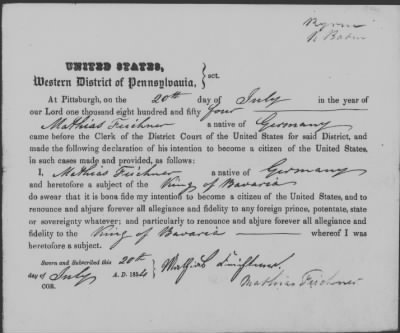 UNITED STATES,
Western District of Pennsylvania, } sct.
At Pittsburgh, on the 20th day of July in the year of
our Lord one thousand eight hundred and fifty four
Mathias Feichner a native of Germany
came before the Clerk of the District Court of the United States for said District, and
made the following declaration of his intention to become a citizen of the United States,
in such cases made and provided, as follows:
I, Mathias Feichner a native of Germany
and heretofore a subject of the King of Bavaria
do swear that it is bona fide my intention to become a citizen of the United States, and to
renounce and abjure forever all allegiance and fidelity to any foreign prince, potentate, state
or sovereignty whatever; and particularly to renounce and abjure forever all allegiance and
fidelity to the King of Bavaria whereof I was
heretofore a subject.
Sworn and Subscribed this 20th
day of July A. D. 1854
COR.
Mathias
Mathias Feichner